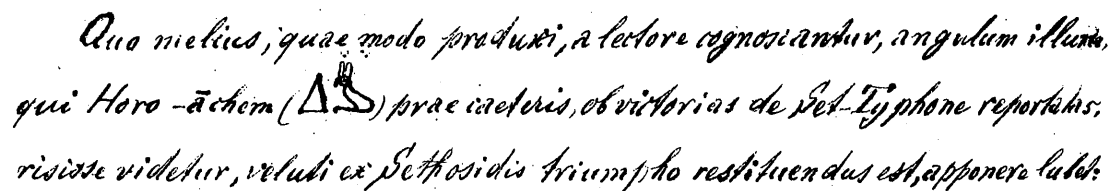 Quo melius, quae modo produxi, a lectore cognoscantur, angulum illum,
qui Horo-āchem () prae caeteris, ob victorias de Set-Typhone reportatas,
risisse videtur, veluti ex Sethosidis triumpho restituendus est, apponere lubet: